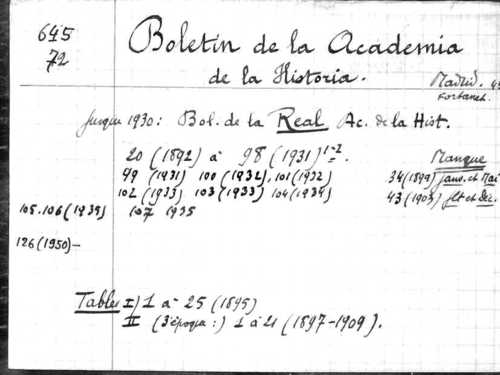 645
72
Boletín de la Academia
de la Historia.
Madrid.
Jusque 1930: Bol. de la Real Ac. de la Hist.
20 (1892) à 98 (1931) 1-2.
Manque
99 (1931) 100 (1932), 101 (1932)
34 (1899) janv. et Mai
102 (1933) 103 (1933) 104 (1934)
43 (1903) et dec.
105.106 (1939) 107 1935
126 (1950) –
Tables I) 1 à 25 (1895)
II (3ª época:) 1 à 21 (1897-1909).